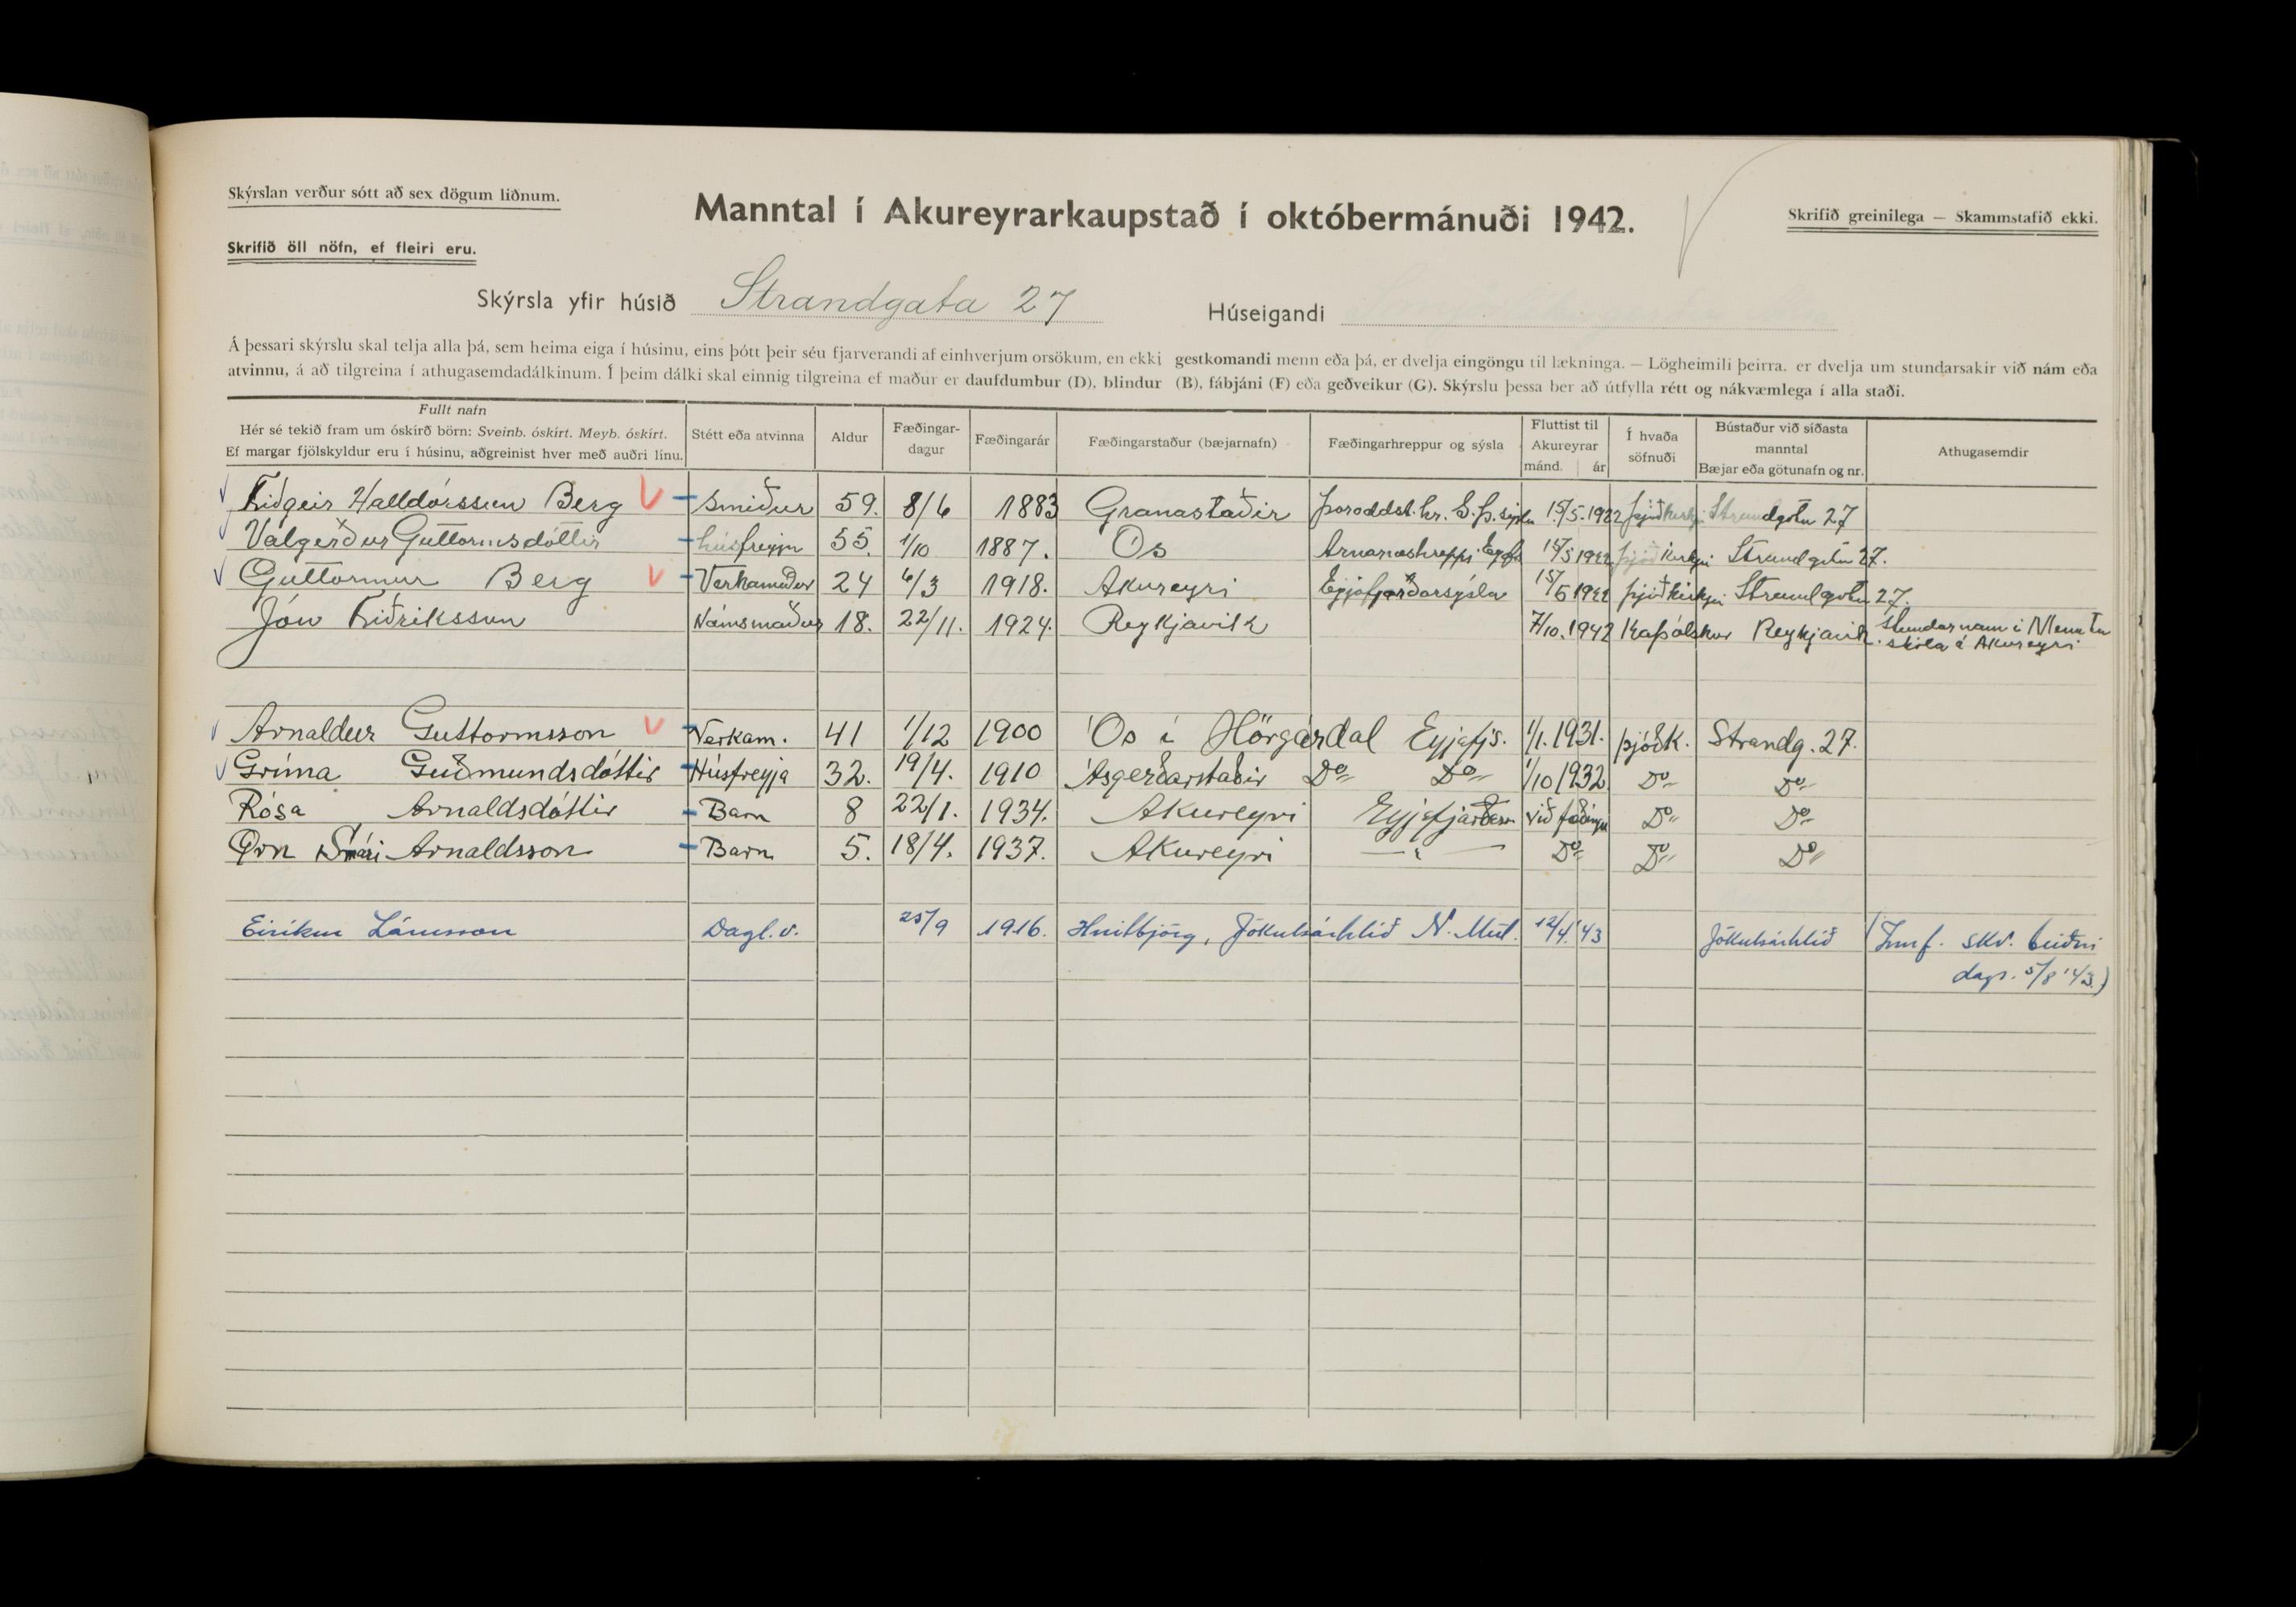 Skýrslan verður sótt að sex dögum liðnum.
Manntal í Akureyrarkaupstað í októbermánuði 1942.
Skrifið greinilega — Skammstafið ekki.
Skrifið öll nöfn, ef fleiri eru.
Skýrsla yfir húsið Strandgata 27 Húseigandi
Á þessari skýrslu skal telja alla þá, sem heima eiga í húsinu, eins þótt þeir séu fjarverandi af einhverjum orsökum, en ekki gestkomandi menn eða þá, er dvelja eingöngu til lækninga. — Lögheimili þeirra. er dvelja um stundarsakir við nám eða
atvinnu, á að tilgreina í athugasemdadálkinum. Í þeim dálki skal einnig tilgreina ef maður er daufdumbur (D), blindur (B), fábjáni (F) eða geðveikur (G). Skýrslu þessa ber að útfylla rétt og nákvæmlega í alla staði.
Fullt nafn
Hér sé tekið fram um óskírð börn: Sveinb. óskírt. Meyb. óskírt.
Ef margar fjölskyldur eru í húsinu, aðgreinist hver með auðri línu.
Stétt eða atvinna
Aldur
Fæðingar-
dagur
Fæðingarár
Fæðingarstaður (bæjarnafn)
Fæðingarhreppur og sýsla
Fluttist til
Akureyrar
mánd. ár
Í hvaða
söfnuði
Bústaður við síðasta
manntal
Bæjar eða götunafn og nr.
Athugasemdir
Halldórsson Berg smiður 59. 8/6 1883 Granastaðir Þoroddst.hr. S.Þ.sýslu 15/5.1922 Þjóðkirkj Strandgötu 27
Valgerður Guttormsdóttir húsfreyja 55. 1/10 1887. Ós Arnarneshreppi Eyjafs 15/5 1922 þjóðkirkju Strandgötu 27.
Guttormur Berg Verkamaður 24 6/3 1918. Akureyri Eyjafjarðarsýsla 15/5 1922 þjóðkirkju Strandgötu 27.
Jón Friðriksson Námsmaður 18. 22/11. 1924. Reykjavik 7/10.1942 Kaþólskur Reykjavik. Stundar nam i Menta
skóla á Akureyri
Arnaldur Guttormsson Verkam. 41 1/12 1900 Ós í Hörgárdal Eyjafjs. 1/1.1931. þjóðk. Strandg. 27.
Gríma Guðmundsdóttir Húsfreyja 32. 19/4. 1910 Ásgerðarstaðir Do Do 1/10 1932 Do Do
Rósa Arnaldsdóttir Barn 8 22/1. 1934. Akureyri Eyjafjarðars við fæðingu Do Do
Örn Smári Arnaldsson Barn 5. 18/4. 1937. Akureyri —"— Do Do Do
Eiríkur Lárusson Dagl.v. 25/9 1916. Hnitbjörg, Jökulsárhlíð N.-Múl. 12/4 '43 Jökulsárhlíð (Innf. skv. beiðni
dags. 5/8 '43.)